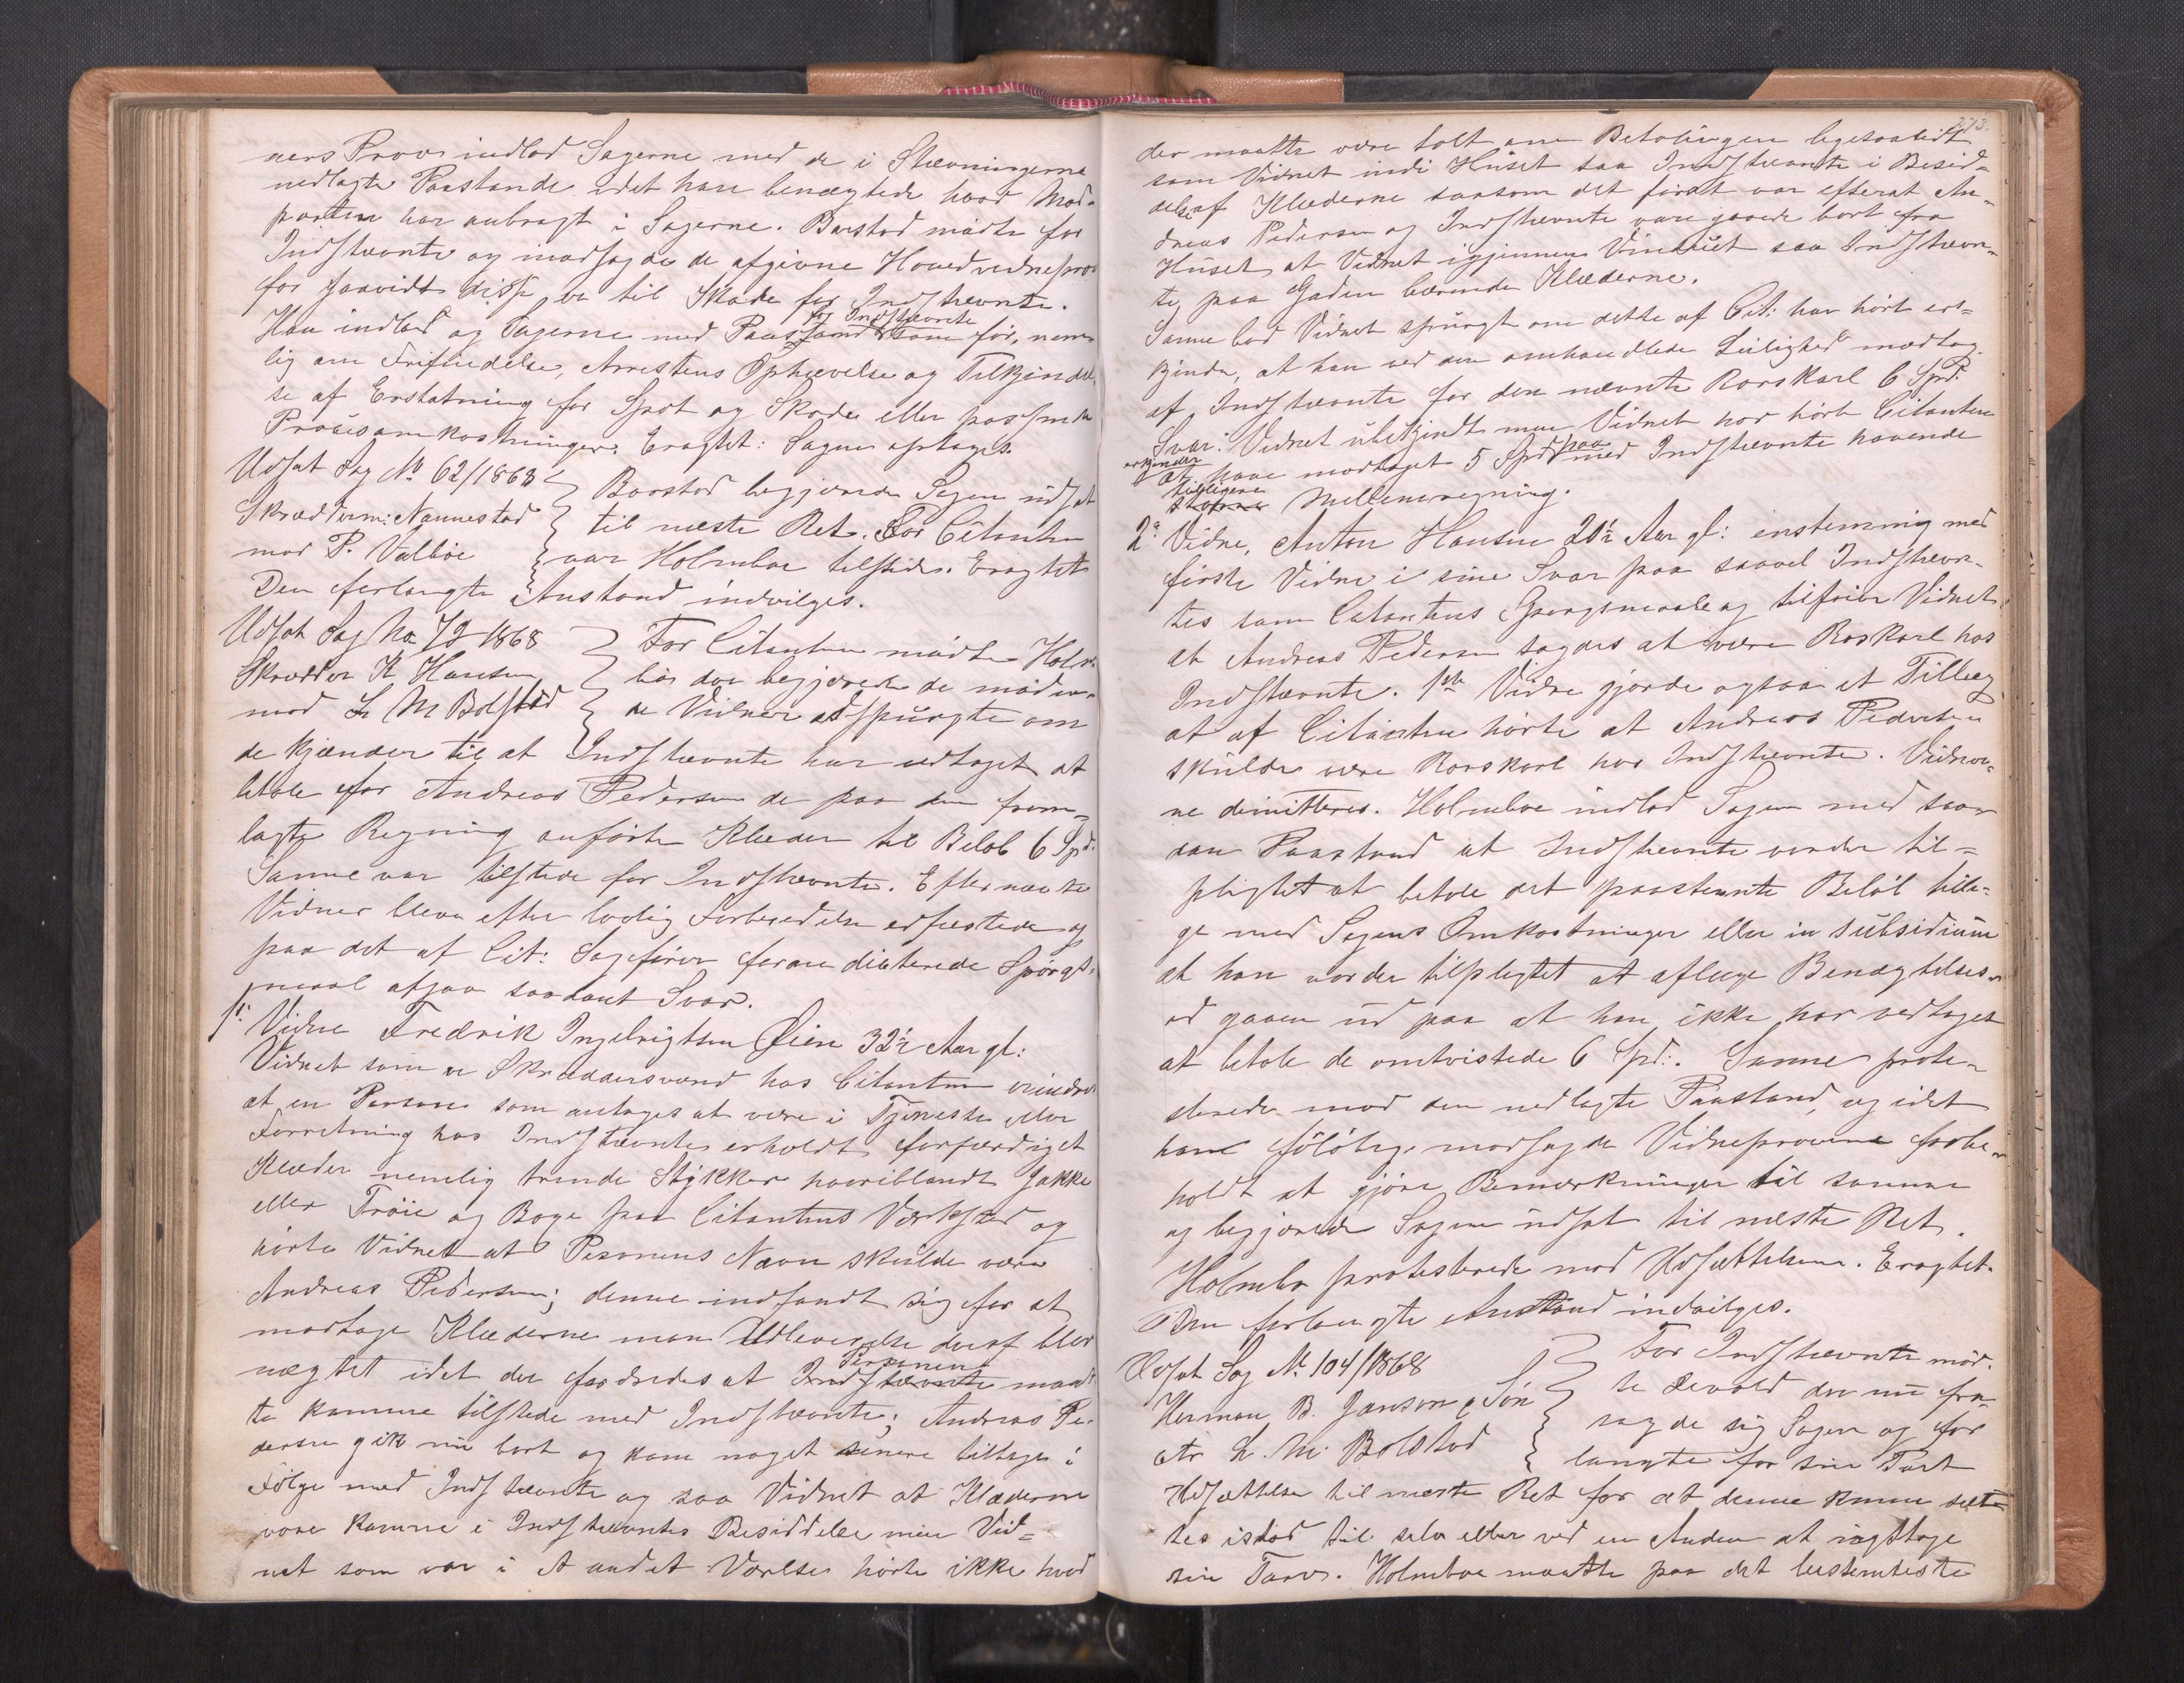 ners Prov indlod Sagerne med de i Stævningerne
nedlagte Paastande idet han benægtede hvad Mod-
parten har anbragt i Sagerne. Barstad mødte for
Indstævnte og modsagde de afgivne Hovedvidneprov
for saavidt disse ere til Skade for Indstævnte.
Han indlod og Sagerne med Paastand for Indstævnte som før, nem-
lig om Frifindelse, Arrestens Ophævelse og Tilkjendel-
se af Erstatning for Spot og Skade eller passende
Procesomkostninger. Eragtet: Sagen optages.
Udsat Sag No 62/1868
Skræderm: Nannestad
mod P. Valbøe
Barstad begjærede Sagen udsat
til næste Ret. For Citanten
var Holmboe tilstede. Eragtet
Den forlangte Anstand indvilges.
Udsat Sag No 72 1868
Skrædder K Hansen
mod L M Bolstad
For Citanten mødte Holm-
boe der begjærede de møden-
de Vidner adspurgte om
de kjænder til at Indstævnte har vedtaget at
betale for Andreas Pedersen de paa den frem-
lagte Regning anførte Klæder til Beløb 6 Spd.
Sanne var tilstede for Indstævnte. Efternævnte
Vidner bleve efter lovlig Forberedelse edfæstede og
paa det af Cit: Sagfører foran dicterede Spørgs-
maal afgav saadant Svar.
1ste Vidne Fredrik Ingebrigtsen Øien 32½ Aar gl:
Vidnet som er Skræddersvend hos Citanten erindrer
at en Person som antages at være i Tjeneste eller
Forretning hos Indstævnte erholdt forfærdiget
Klæder nemlig trende Stykker hvoriblandt Jakke
eller Trøie og Boxe paa Citantens Værksted og
hørte Vidnet at Personens Navn skulde være
Andreas Pedersen; denne indfandt sig for at
modtage Klæderne men Udleverelse deraf blev
nægtet idet der fordredes at Indstævnte Personen maat-
te komme tilstede med Indstævnte; Andreas Pe-
dersen gik nu bort og kom noget senere tilbage i
Følge med Indstævnte og saa Vidnet at Klæderne
vare komne i Indstævntes Besiddelse men Vid-
net som var i et andet Værelse hørte ikke hvad
273.
der maatte være talt om Betalingen ligesaalidt
som Vidnet inde i Huset saa Indstævnte i Besid-
delse af Klæderne saasom det først var efterat An-
dreas Pedersen og Indstævnte vare gaaede bort fra
Huset, at Vidnet igjennem Vinduet saa Indstævn-
te, paa Gaden bærende Klæderne.
Sanne bad Vidnet spurgt om dette af Cit: har hørt er-
kjende, at han ved den omhandlede Leilighed modtog
af Indstævnte for den nævnte Rorskarl 6 Spd.
Svar: Vidnet ubekjendt men Vidnet har hørt Citanten
erkjender at have modtaget 5 Spd paa med Indstævnte havende
tidligere større Mellemregning.
2det Vidne, Anton Hansen 20½ Aar gl: enstemmig med
første Vidne i sine Svar paa saavel Indstævn-
tes som Citantens Spørgsmaale og tilføier Vidnet
at Andreas Pedersen sagdes at være Rorskarl hos
Indstævnte. 1ste Vidne gjorde ogsaa et Tillæg
at af Citanten hørte at Andreas Pedersen
skulde være Rorskarl hos Indstævnte. Vidner-
ne dimitteres. Holmboe indlod Sagen med saa-
dan Paastand at Indstævnte vorder til-
pligtet at betale det paastævnte Beløb tilli-
ge med Sagens Omkostninger eller in subsidium
at han vorder tilpligtet at aflægge Benægtelses-
ed gaaen ud paa at han ikke har vedtaget
at betale de omtvistede 6 Spd:. Sanne prote-
sterede mod den nedlagte Paastand, og idet
han foløbig modsagde Vidneprovene forbe-
holdt at gjøre Bemærkninger til samme
og begjærede Sagen udsat til næste Ret.
Holmboe protesterede mod Udsættelsen. Eragtet.
Den forlangte Anstand indvilges.
Udsat Sag No 104/1868
Herman B. Janson & Søn
ctr L. M. Bolstad
For Indstævnte mød-
te Sevold der nu fra-
sagde sig Sagen og for
langte for sin Part
Udsættelse til næste Ret for at denne kunne sæt-
tes istad til selv eller ved en Anden at iagttage
sin Tarv. Holmboe maatte paa det bestemteste